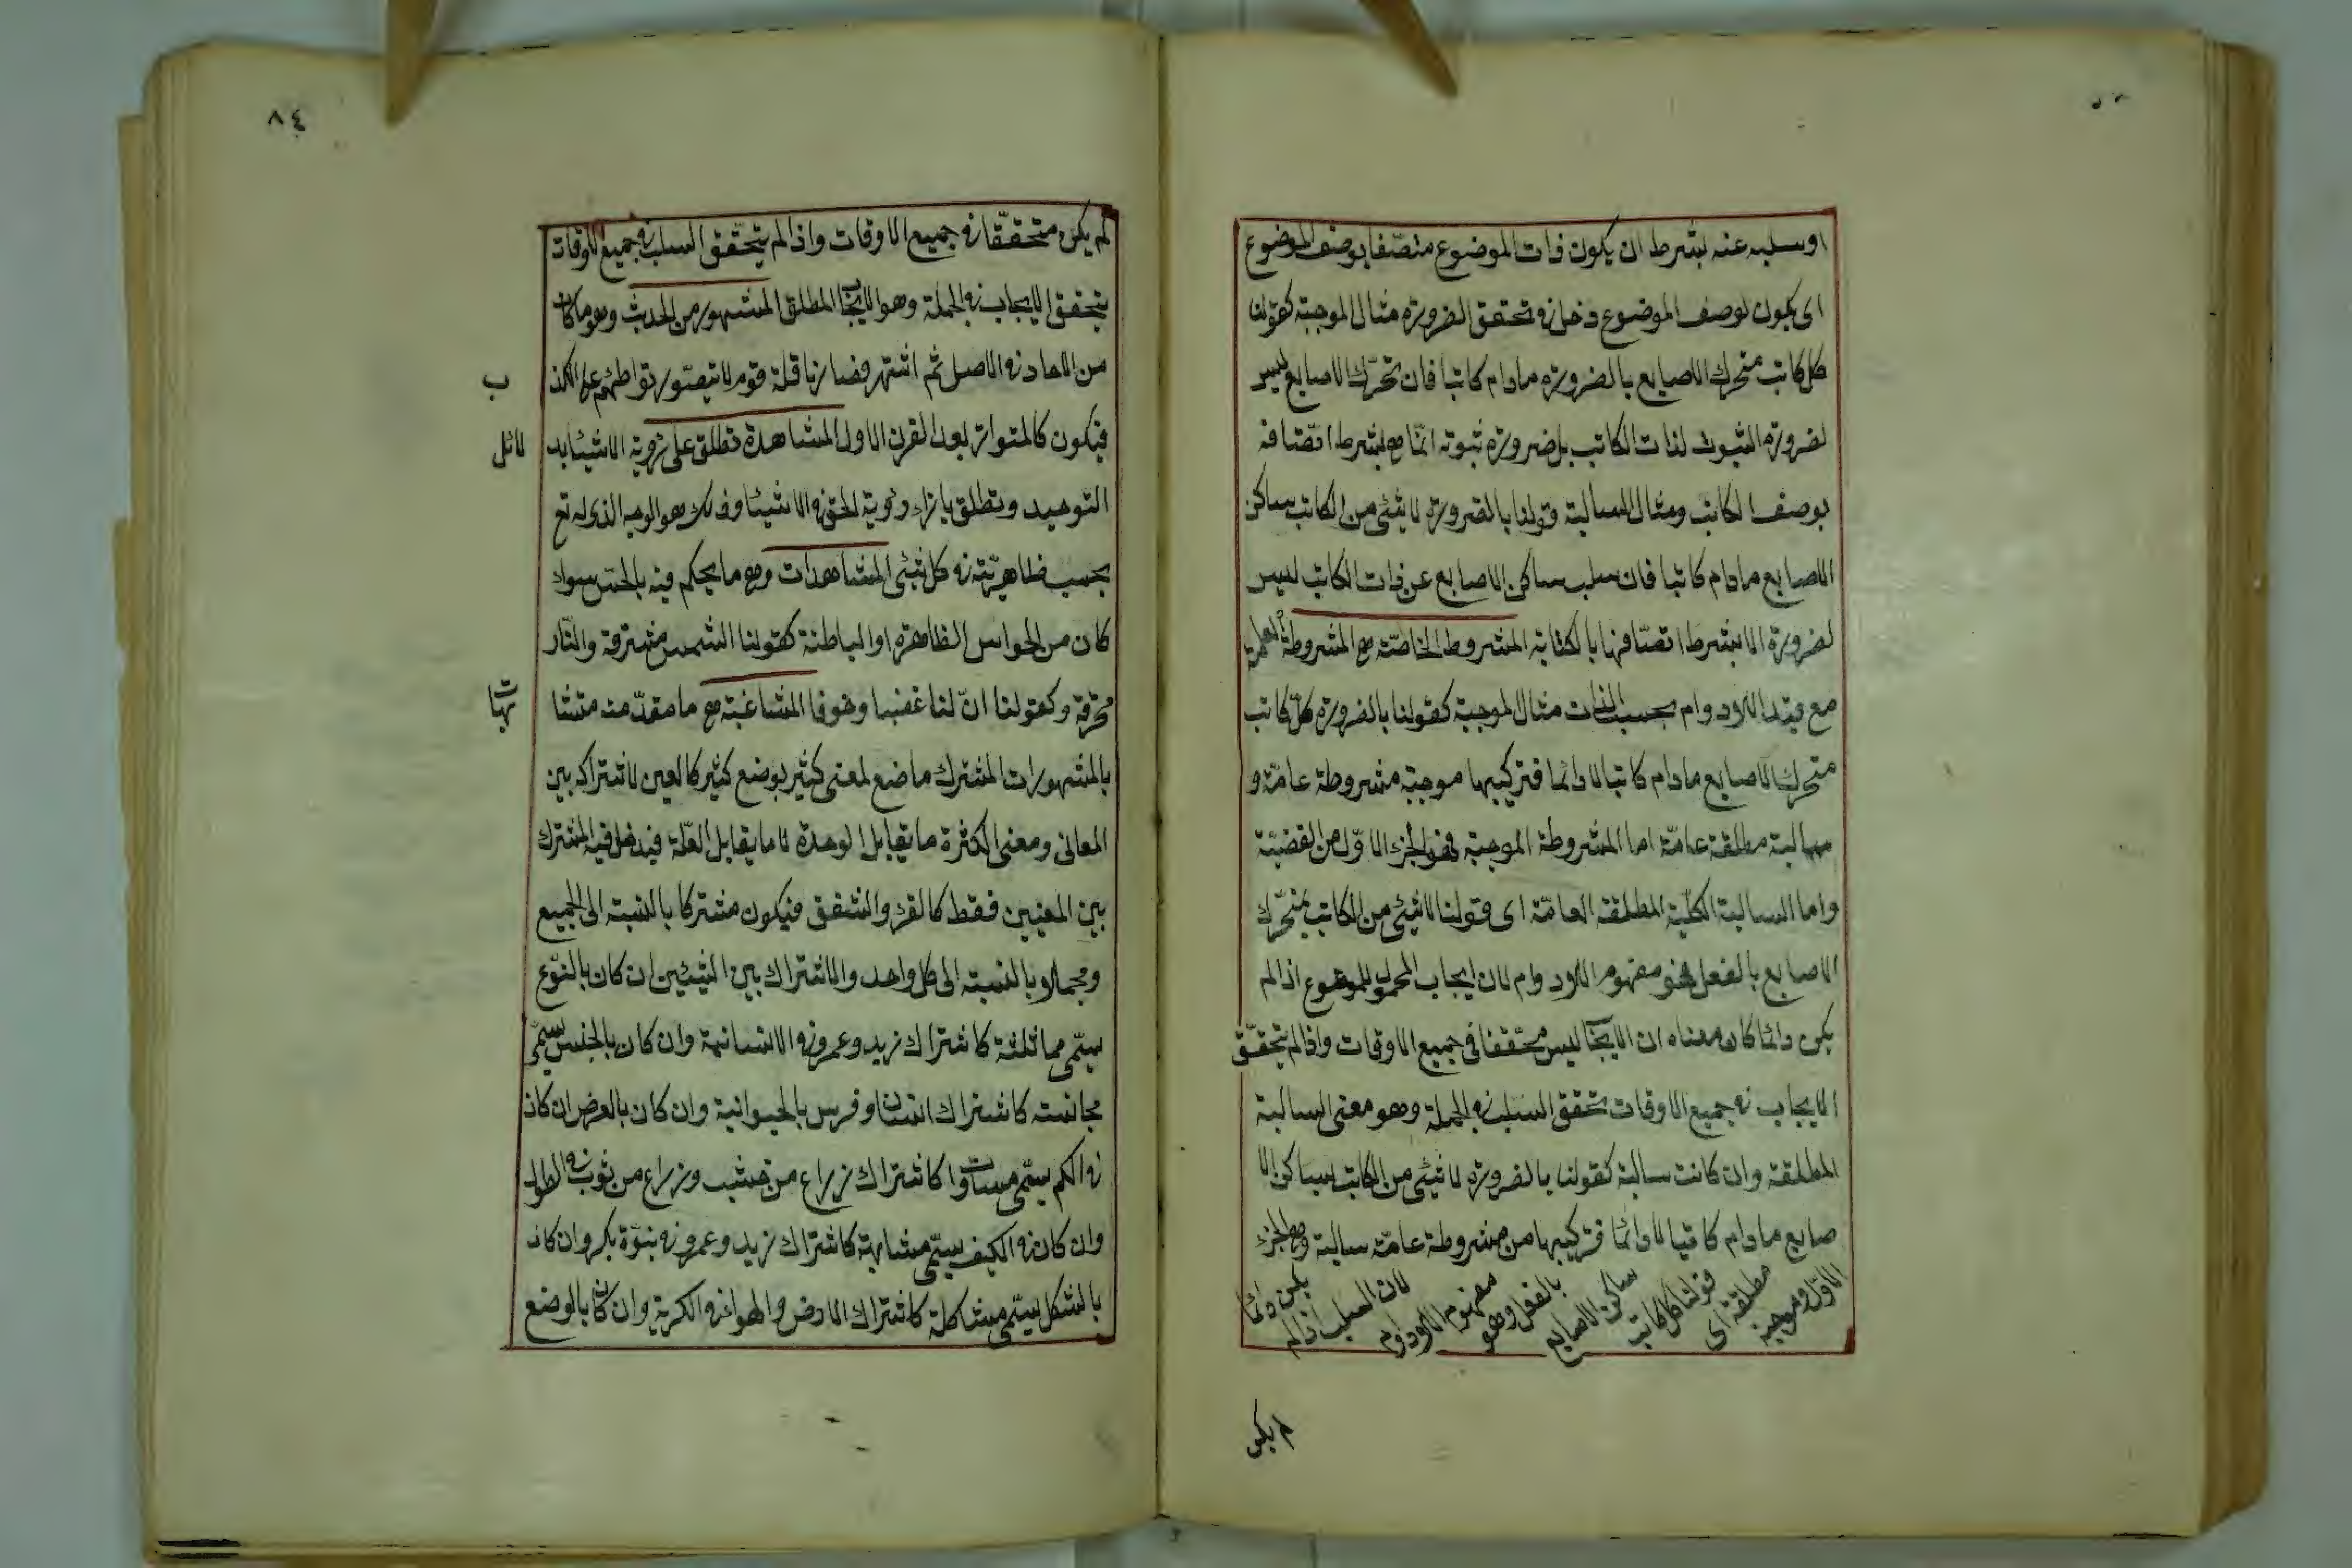 او سلبه عنه بشرط ان يكون ذات الموضوع متصفا بوصف الموضوع
اى يكون لوصف الموضوع دخل فى تحقق الضرورة مثال الموجبة كقولنا
كل كاتب متحرك الاصابع بالضرورة مادام كاتبا فان تحرّك الاصابع ليس
لضرورة الثبوت لذات الكاتب بل ضرورة ثبوته انما هى بشرط اتصافه
بوصف الكاتب ومثال السالبة قولنا بالضرورة لا شئ من الكاتب بساكن
الاصابع مادام كاتبا فان سلب ساكن الاصابع عن ذات الكاتب ليس
لضرورة الا بشرط اتصافها بالكتابة المشروط الخاصّة هى المشروطة العامة
مع قيد اللادوام بحسب الذات مثال الموجبة كقولنا بالضرورة كل كاتب
متحرك الاصابع مادام كاتبا لا دائما فتركيبها موجبة مشروطة عامّة و
سالبة مطلقة عامّة اما المشروطة الموجبة فهو الجزء الاوّل من القضيّة
واما السالبة الكلّية المطلقة العامّة اى قولنا لا شئ من الكاتب بمتحرّك
الاصابع بالفعل فهو مفهوم اللادوام لان ايجاب المحمول للموضوع اذا لم
يكن دائما كان معناه ان الايجاب ليس متحققا فى جميع الاوقات واذا لم يتحقّق
الايجاب فى جميع الاوقات تحقق السلب فى الجملة وهو معنى السالبة
المطلقة وان كانت سالبة كقولنا بالضرورة لا شئ من الكاتب بساكن الا
صابع مادام كاتبا لا دائما فتركيبها من مشروطة عامّة سالبة وهى الجزء
الاوّل وموجبة مطلقة اى قولنا كل كاتب ساكن الاصابع بالفعل وهو مفهوم اللادوام لان السلب اذا لم يكن دائما
لم يكن
٨٤
لم يكن متحققّا فى جميع الاوقات واذا لم يتحقق السلب فى جميع الاوقات
يتحقق الايجاب فى الجملة وهو الايجاب المطلق المشهور من الحديث وهو ما كان
من الاحاد فى الاصل ثم اشتهر فصار ناقلة قوم لا يتصوّر تواطئهم على الكذ
ب
فيكون كالمتواتر بعد القرن الاول المشاهدة تطلق على رؤية الاشيئا بد
لائل
التوحيد وتطلق بازاء رؤية الحق فى الاشيئا وذلك هو الوجه الذى له تع
بحسب ظاهريّته فى كل شئ المشاهدات وهى ما يحكم فيه بالحسّ سواء
كان من الحواس الظاهرة او الباطنة كقولنا الشمس مشرقة والنّار
محرقة وكقولنا انّ لنا غضبا وخوفا المشاغبة هى ما مقدّمته متشا
بهات
بالمشهورات المشترك ما ضع لمعنى كثير بوضع كثير كالعين لاشتراكه بين
المعانى ومعنى الكثرة ما يقابل الوحدة لا ما يقابل القلّة فيدخل فيه المشترك
بين المعنيين فقط كالقرء والشفق فيكون مشتركا بالنسبة الى الجميع
ومجملا بالنسبة الى كل واحد والاشتراك بين الشيئين ان كان بالنّوع
سيمّى مماثلثة كاشتراك زيد وعمرو فى الانسانية وان كان بالجنس سيمّى
مجانسة كاشتراك انسان وفرس بالحيوانية وان كان بالعرض ان كان
فى الكم سيمّى مساواة كاشتراك زراع من خشب وزراع من ثوب فى الطول
وان كان فى الكيف سيمّى مشابهة كاشتراك زيد وعمرو فى بنوّة بكر وان كان
بالشكل سيمّى مشاكلة كاشتراك الارض والهواء فى الكرية وان كان بالوضع